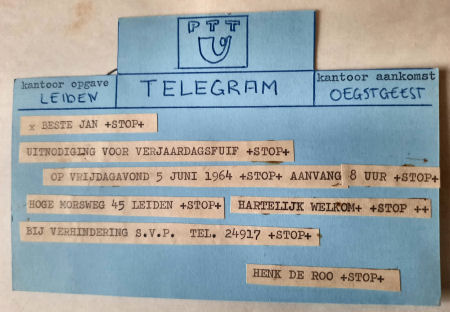 PTT
kantoor opgave
LEIDEN
TELEGRAM
kantoor aankomst
OEGSTGEEST
x BESTE JAN +STOP+
UITNODIGING VOOR VERJAARDAGSFUIF +STOP+
OP VRIJDAGAVOND 5 JUNI 1964 +STOP+ AANVANG 8 UUR +STOP+
HOGE MORSWEG 45 LEIDEN +STOP+ HARTELIJK WELKOM+ +STOP ++
BIJ VERHINDERING S.V.P. TEL. 24917 +STOP+
HENK DE ROO +STOP+